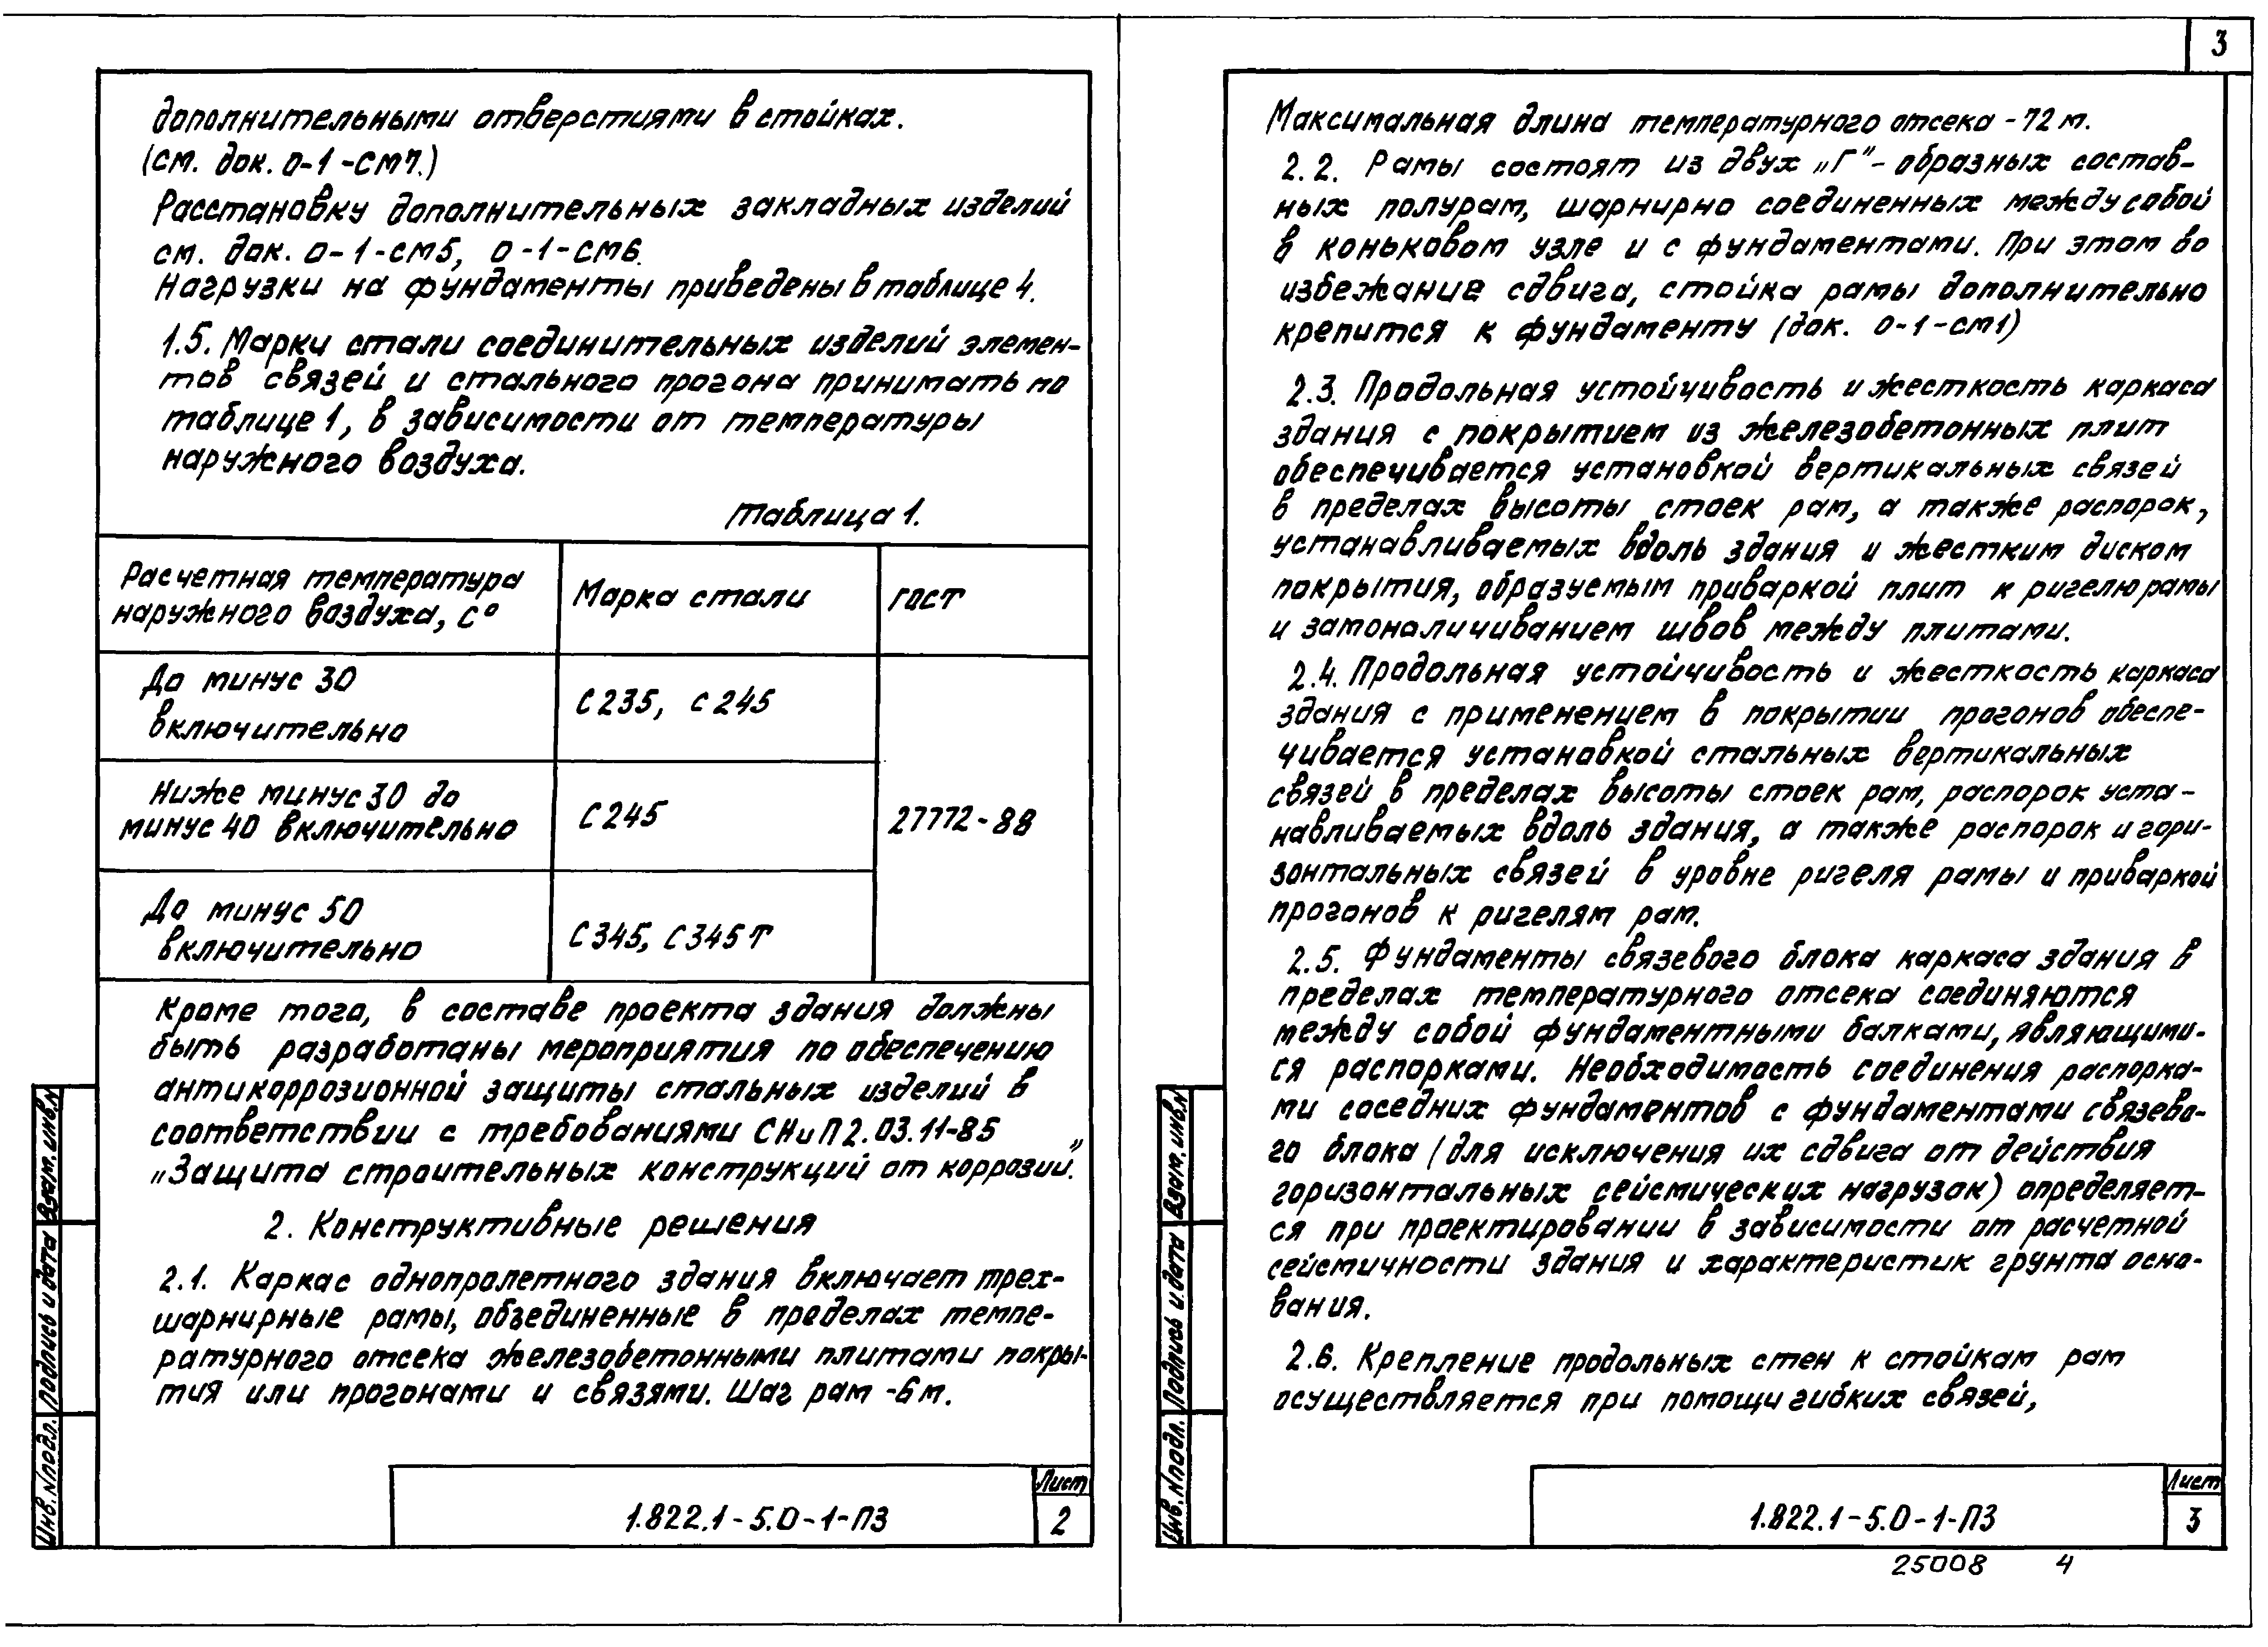 3
дополнительными отверстиями в стойках.
(см. док. 0-1-СМ7.)
Расстановку дополнительных закладных изделий
см. док. 0-1-СМ5, 0-1-СМ6.
Нагрузки на фундаменты приведены в таблице 4.
1.5. Марки стали соединительных изделий элемен-
тов связей и стального прогона принимать по
таблице 1, в зависимости от температуры
наружного воздуха.
Таблица 1.
Расчетная температура
наружного воздуха, С°
Марка стали
ГОСТ
До минус 30
включительно
С235, С245
Ниже минус 30 до
минус 40 включительно
С245
27772-88
До минус 50
включительно
С345, С345Т
Кроме того, в составе проекта здания должны
быть разработаны мероприятия по обеспечению
антикоррозионной защиты стальных изделий в
соответствии с требованиями СНиП 2.03.11-85
„Защита строительных конструкций от коррозии."
2. Конструктивные решения
2.1. Каркас однопролетного здания включает трех-
шарнирные рамы, объединенные в пределах темпе-
ратурного отсека железобетонными плитами покры-
тия или прогонами и связями. Шаг рам -6м.
Взам. инв.N
Подпись и дата
Инв. N подл.
1.822.1-5.0-1-ПЗ
Лист
2
Максимальная длина температурного отсека - 72 м.
2.2. Рамы состоят из двух „Г"- образных состав-
ных полурам, шарнирно соединенных между собой
в коньковом узле и с фундаментами. При этом во
избежание сдвига, стойка рамы дополнительно
крепится к фундаменту (док. 0-1-СМ1)
2.3. Продольная устойчивость и жесткость каркаса
здания с покрытием из железобетонных плит
обеспечивается установкой вертикальных связей
в пределах высоты стоек рам, а также распорок,
устанавливаемых вдоль здания и жестким диском
покрытия, образуемым приваркой плит к ригелю рамы
и замоноличиванием швов между плитами.
2.4. Продольная устойчивость и жесткость каркаса
здания с применением в покрытии прогонов обеспе-
чивается установкой стальных вертикальных
связей в пределах высоты стоек рам, распорок уста-
навливаемых вдоль здания, а также распорок и гори-
зонтальных связей в уровне ригеля рамы и приваркой
прогонов к ригелям рам.
2.5. Фундаменты связевого блока каркаса здания в
пределах температурного отсека соединяются
между собой фундаментными балками, являющими-
ся распорками. Необходимость соединения распорка-
ми соседних фундаментов с фундаментами связево-
го блока (для исключения их сдвига от действия
горизонтальных сейсмических нагрузок) определяет-
ся при проектировании в зависимости от расчетной
сейсмичности здания и характеристик грунта осно-
вания.
2.6. Крепление продольных стен к стойкам рам
осуществляется при помощи гибких связей,
Взам. инв.N
Подпись и дата
Инв. N подл.
1.822.1-5.0-1-ПЗ
Лист
3
25008 4